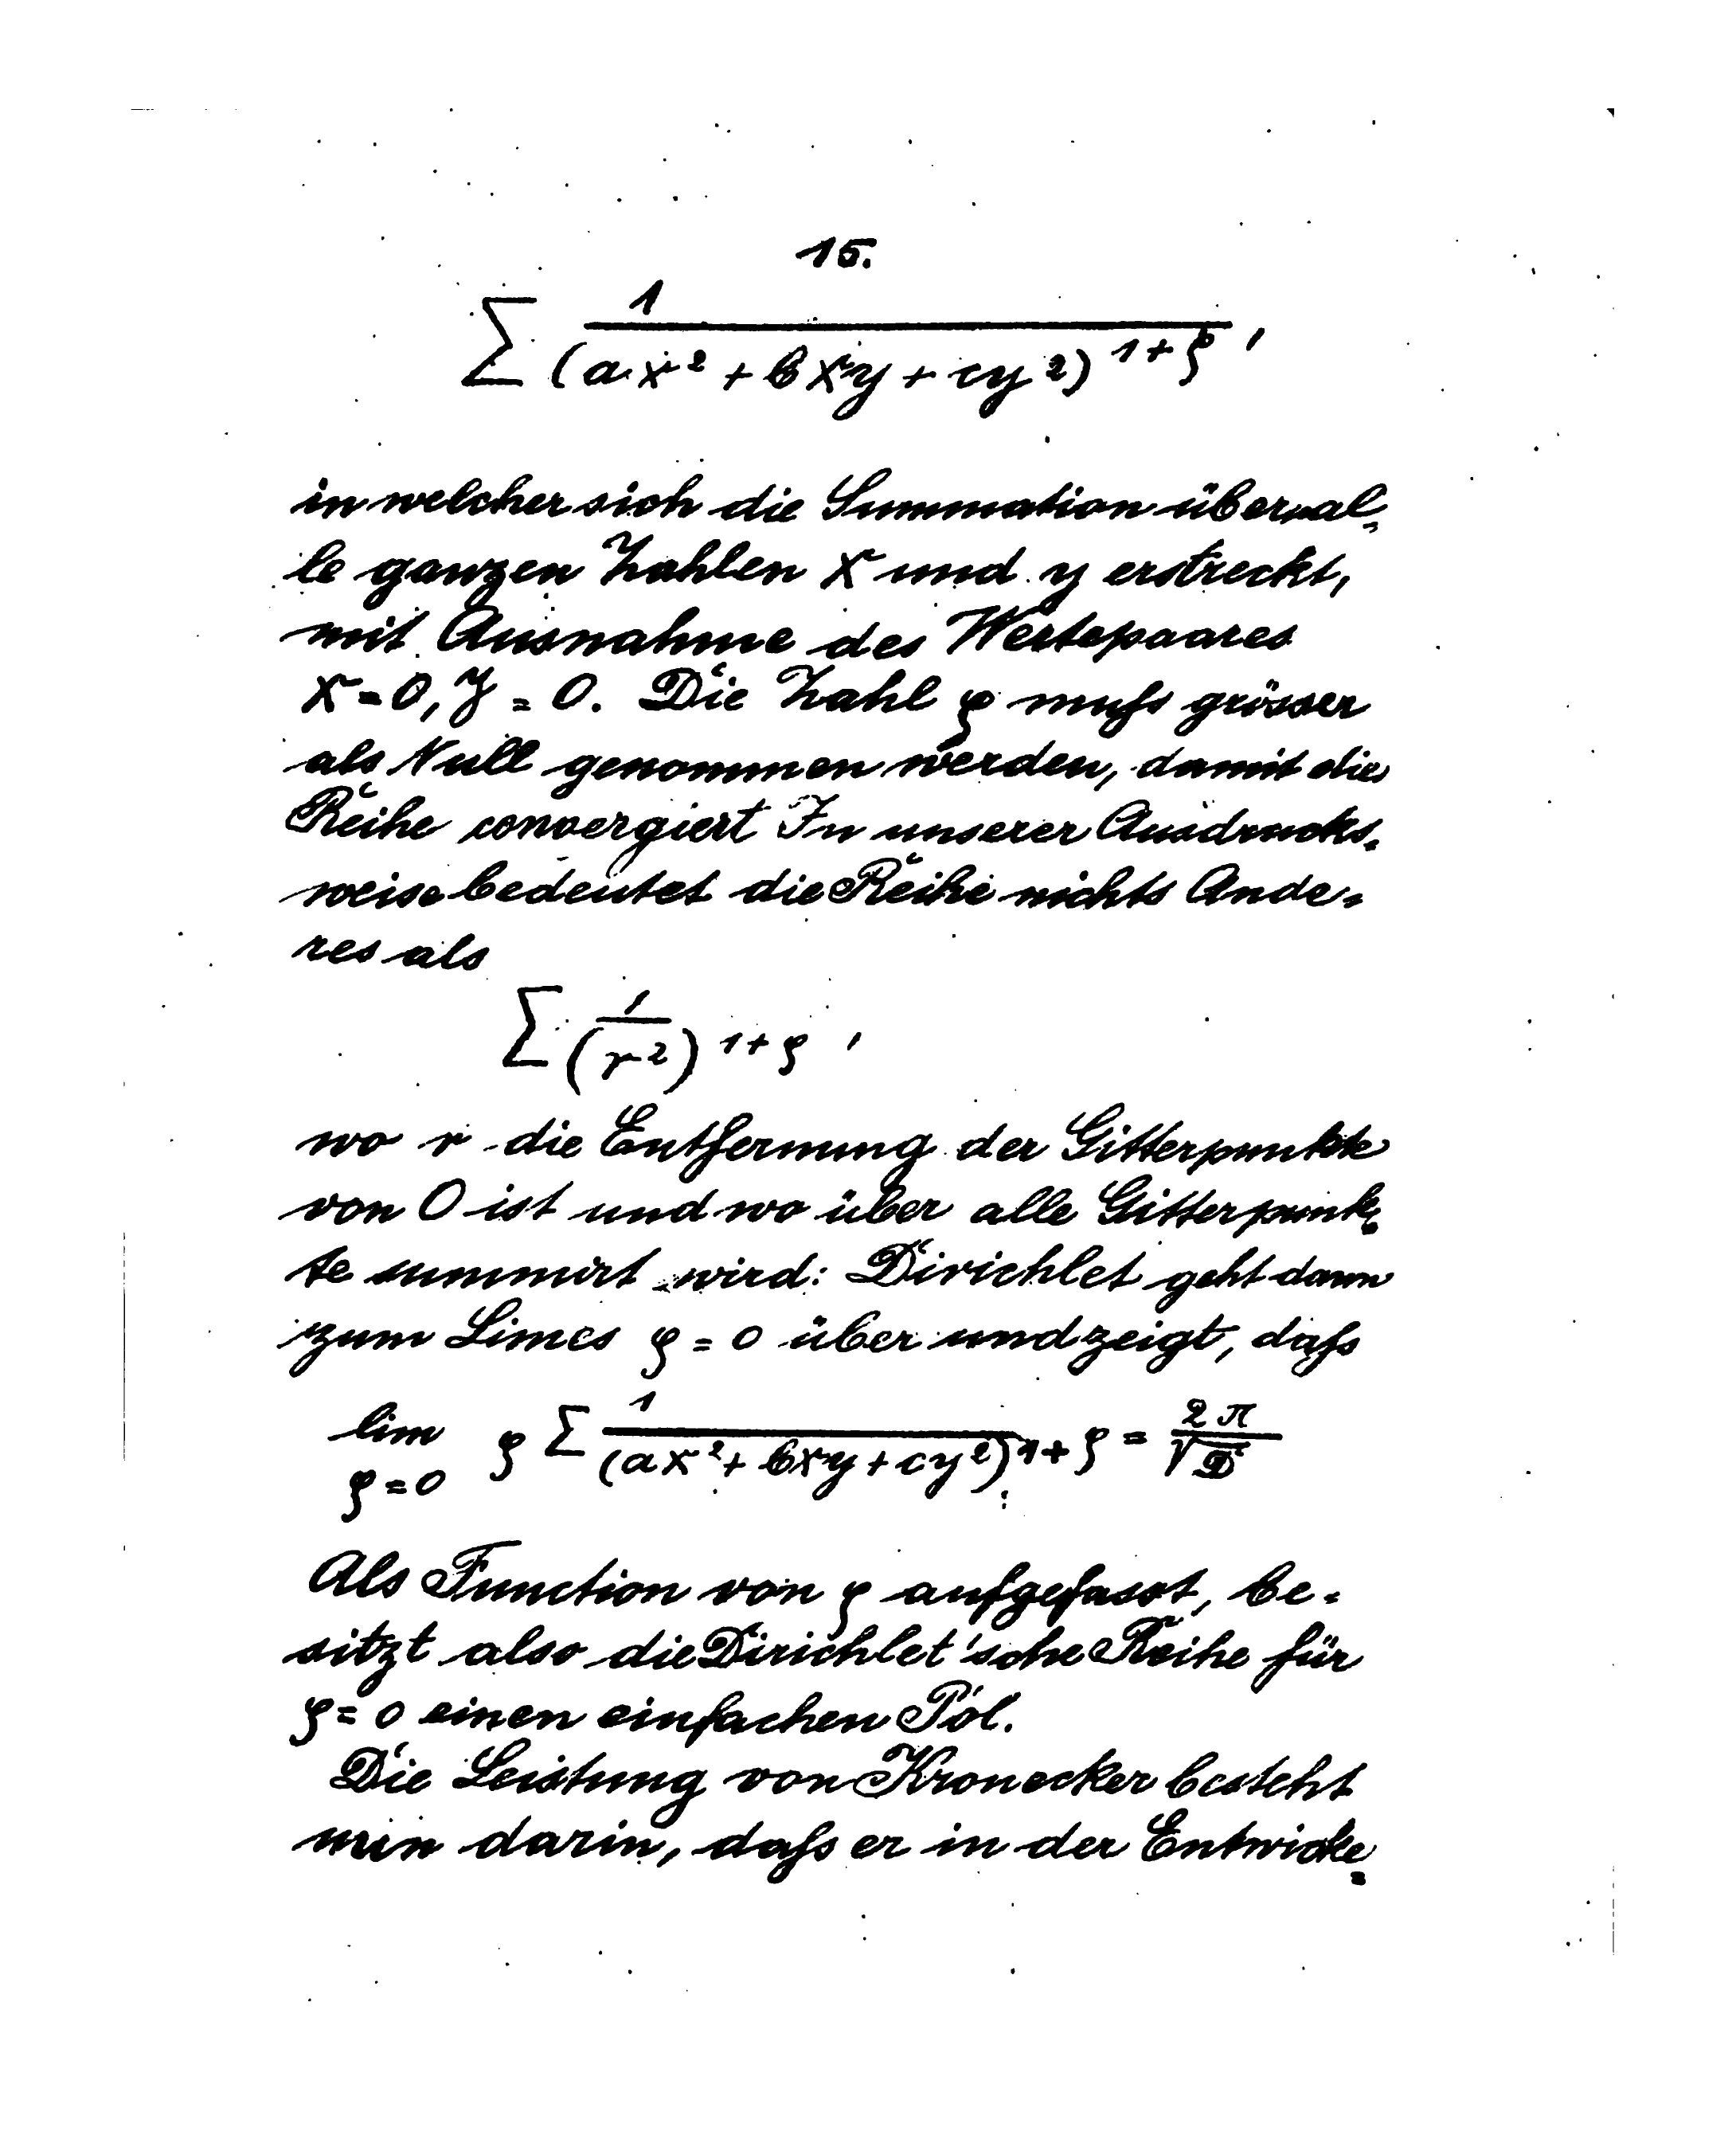 15.
∑ 1/(ax² + bxy + cy²)^{1+ρ},
in welcher sich die Summation über al-
le ganzen Zahlen x und y erstreckt,
mit Ausnahme des Wertepaares
x = 0, y = 0. Die Zahl ρ muſs grösser
als Null genommen werden, damit die
Reihe convergiert In unserer Ausdrucks-
weise bedeutet die Reihe nichts Ande-
res als
∑ 1/(r²)^{1+ρ},
wo r die Entfernung der Gitterpunkte
von O ist und wo über alle Gitterpunk-
te summirt wird: Dirichlet geht dann
zum Limes ρ = 0 über und zeigt, daſs
lim_{ρ=0} ρ ∑ 1/(ax² + bxy + cy²)^{1+ρ} = 2π/√D
Als Function von ρ aufgefasst, be-
sitzt also die Dirichlet'sche Reihe für
ρ = 0 einen einfachen Pol.
Die Leistung von Kronecker besteht
nun darin, daſs er in der Entwicke-